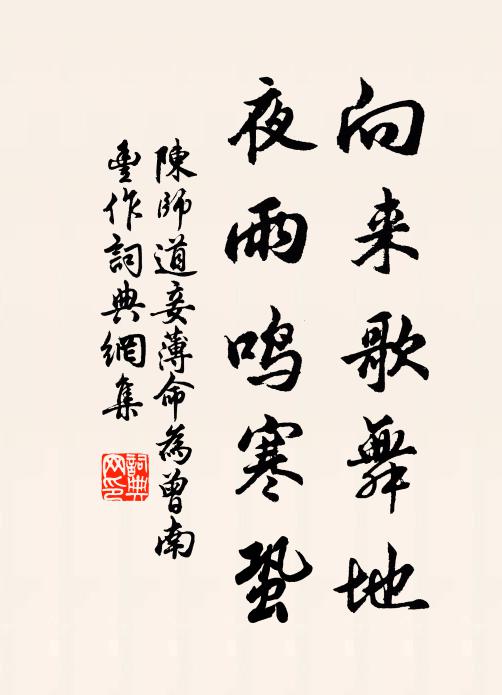 向来歌舞地
夜雨鸣寒蛩
陳師道妾薄命為曾南
豊作詞典網集
詞典
网印